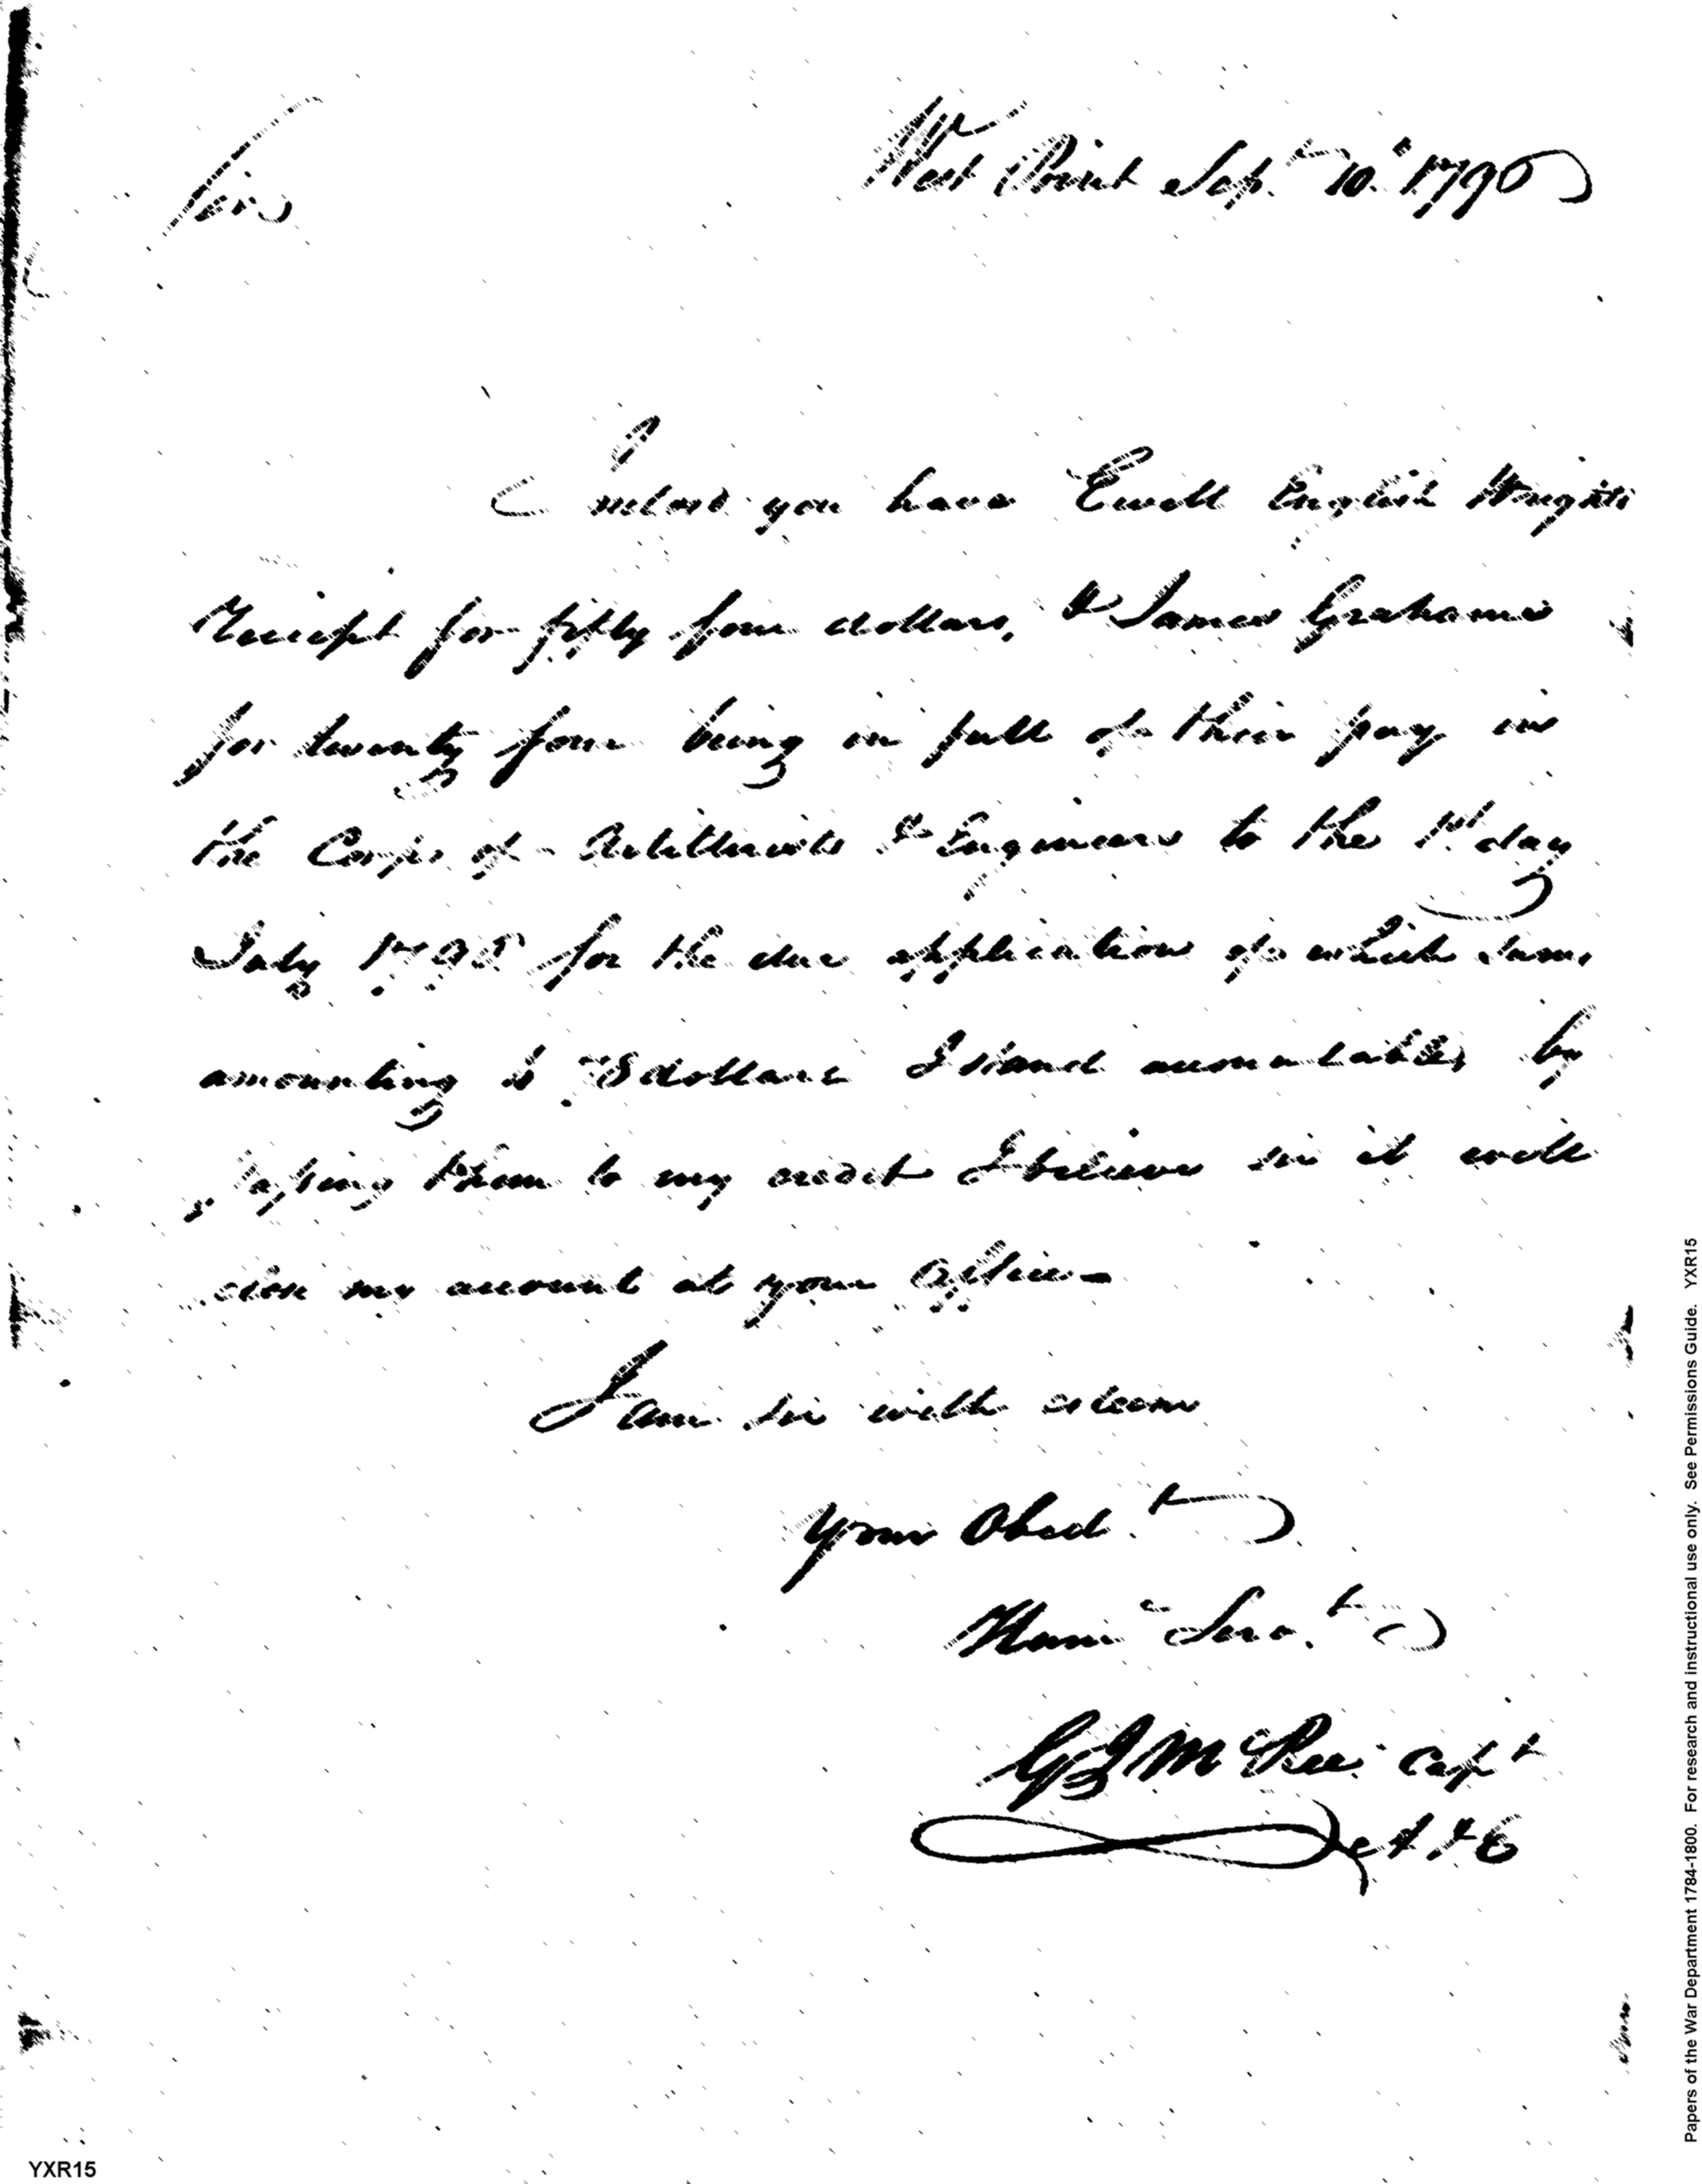 West Point Sept 10th 1796
Sir
Inclosed you have Ewell English Wrights
Reciept for fifty four dollars, & James Grahams
for twenty four being in full of their pay in
the Corps of Artillerists & Engineers to the 1st day
July 1795 for the due application of which sum,
amounting to 78 dollars I stand accountable, by
passing them to my credit I believe sir it will
close my account at your Office -
I am Sir with esteem
Your Obedt
Hume Servt
G J McRee Capt
C A & E
YXR15
Papers of the War Department 1784-1800. For research and instructional use only. See Permissions Guide. YXR15